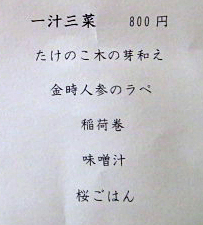 一汁三菜 800円
たけのこ木の芽和え
金時人参のラペ
稲荷巻
味噌汁
桜ごはん